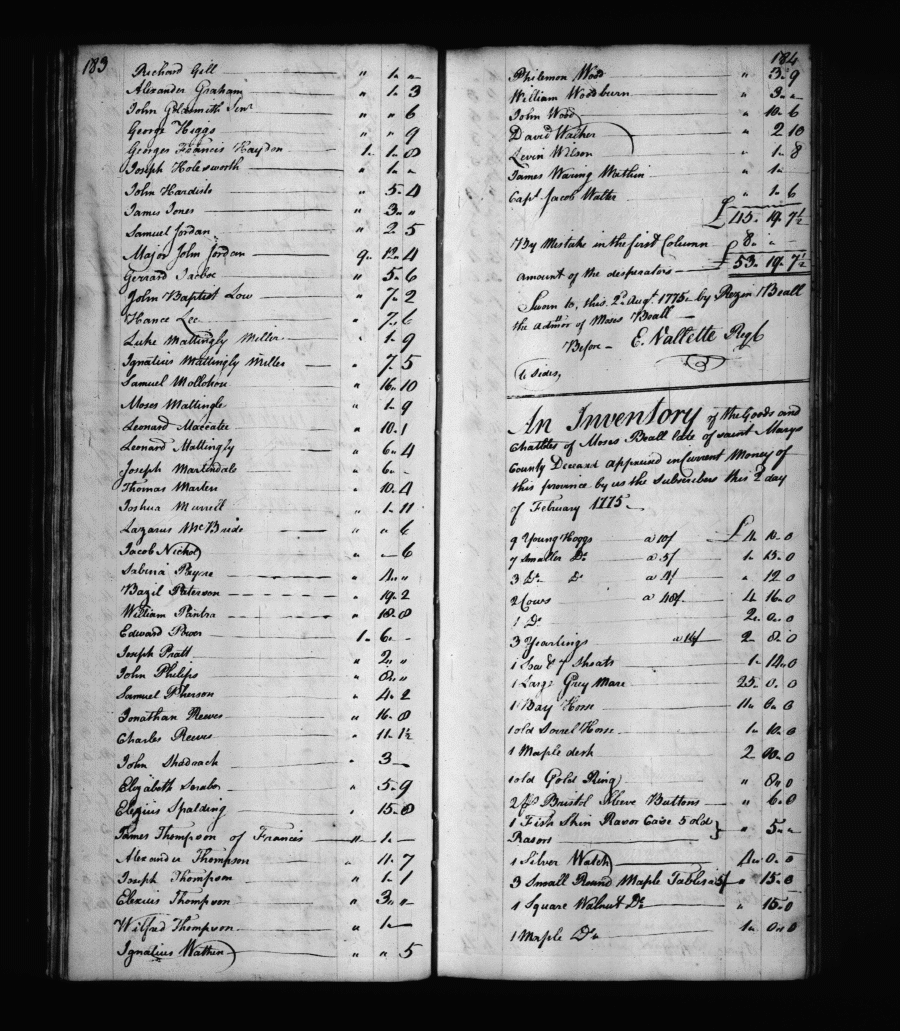 183
Richard Gill " 1 "
Alexander Graham " 1 3
John Goldsmith Senr " " 6
George Higgs " " 9
Georges Francis Haydon 1 1 8
Joseph Holesworth " 1 "
John Hardisty " 5 4
James Jones " 3 "
Samuel Jordan " 2 5
Major John Jordan 9 12 4
Gerrard " 5 6
John Baptist Low " 7 2
Hance Lee " 7 6
Luke Mattingly Miller " 1 9
Ignatius Mattingly Miller " 7 5
Samuel Mollohon " 16 10
Moses Mattingle " 1 9
Leonard Maccatee " 10 1
Leonard Mattingly " 6 4
Joseph Martindale " 6 -
Thomas Marten " 10 4
Joshua Murrell " 1 11
Lazarus McBride " " 6
Jacob Nichol " - 6
Sabina Payne " 4 "
Bazil Peterson " 19 2
William " 18 8
Edward Power 1 6 -
Joseph Pratt " 2 "
John Philips " 8 "
Samuel Pherson " 4 2
Jonathan Reeves " 16 8
Charles Reeves " 11 1½
John Shadrach " 3 -
Elizabeth " 5 9
Elexius Spalding " 15 8
James Thompson of Francis " 1 -
Alexander Thompson " 11 7
Joseph Thompson " 1 1
Elexius Thompson " 3 "
Wilfred Thompson " 1 -
Ignatius Wathen " " 5
184
Philemon Wood " 3 9
William Woodburn " 3 "
John Wood " 10 6
David Walker " 2 10
Levin Wilson " 1 8
James Waring Wathin " 1 "
Capt. Jacob Walter " 1 6
£45 19 7½
By Mestake in the first Column 8 " -
amount of the desperators £53 19 7½
Sworn to, this 2d Augt. 1775 by Rezin Beall
the admor of Moses Beall
Before - E. Vallette Regr
6 sides,
An Inventory of the Goods and
Chattles of Moses Beall late of saint Marys
County Deceasd appraised in Current Money of
this province by us the Subscribers this 2 day
of February 1775
9 Young Hoggs a 10/ £4 10 0
7 Smaller Do a 5/ 1 15 0
3 Do Do a 4/ " 12 0
2 Cows a 48/ 4 16 0
1 Do 2 0 0
3 Yearlings a 16/ 2 8 0
1 Sow & 7 Shoats 1 14 0
1 Large Grey Mare 25 0 0
1 Bay Horse 11 0 0
1 old Sorrel Horse 1 10 0
1 Maple desk 2 10 0
1 old Gold Ring " 8 0
2 ps Bristol Sleeve Buttons " 6 0
1 Fish Skin Razor Case 5 old } " 5 "
Rasors
1 Silver Watch 4 0 0
3 Small Round Maple Tables a 5/ " 15 0
1 Square Walnut Do " 15 0
1 Maple Do 1 0 0